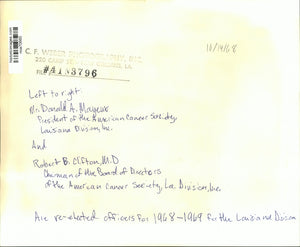 10/14/68
C. F. WEBER PHOTOGRAPHY, INC.
220 CAMP ST.
FILE #A1N3796
Left to right
Mr. Donald A.
President of the American Cancer Society,
Louisiana Division, Inc.
And
Robert B. Clifton, M.D
Chairman of the Board of Directors
of the American Cancer Society, La. Division, Inc.
Are re-elected officers for 1968-1969 for the Louisiana Division